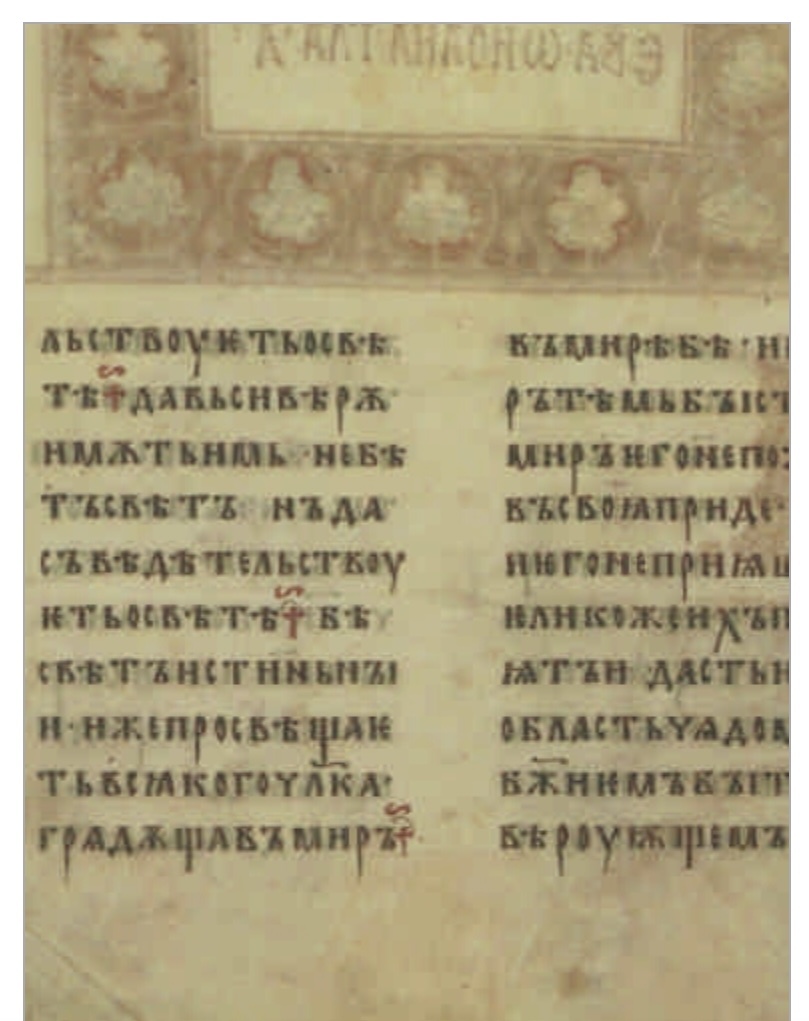 льствоуѥтьосвѣ
тѣ давьсивѣрѫ
имѫтьимь·небѣ
тъсвѣтъ нъда
съвѣдѣтельствоу
ѥтьосвѣтѣ бѣ
свѣтъистиньнꙑ
и·ижепросвѣщаѥ
тьвсꙗкогочл҃ка·
грѧдѫщавъмиръ
въмирѣбѣ·и
рътѣмьбꙑст
миръѥгонепо
въсвоꙗприде·
иѥгонеприꙗ
ѥликожеихъп
ꙗтъи дастьи
областьчѧдо
б҃жиѥмъбꙑт
вѣроуѭщемъ